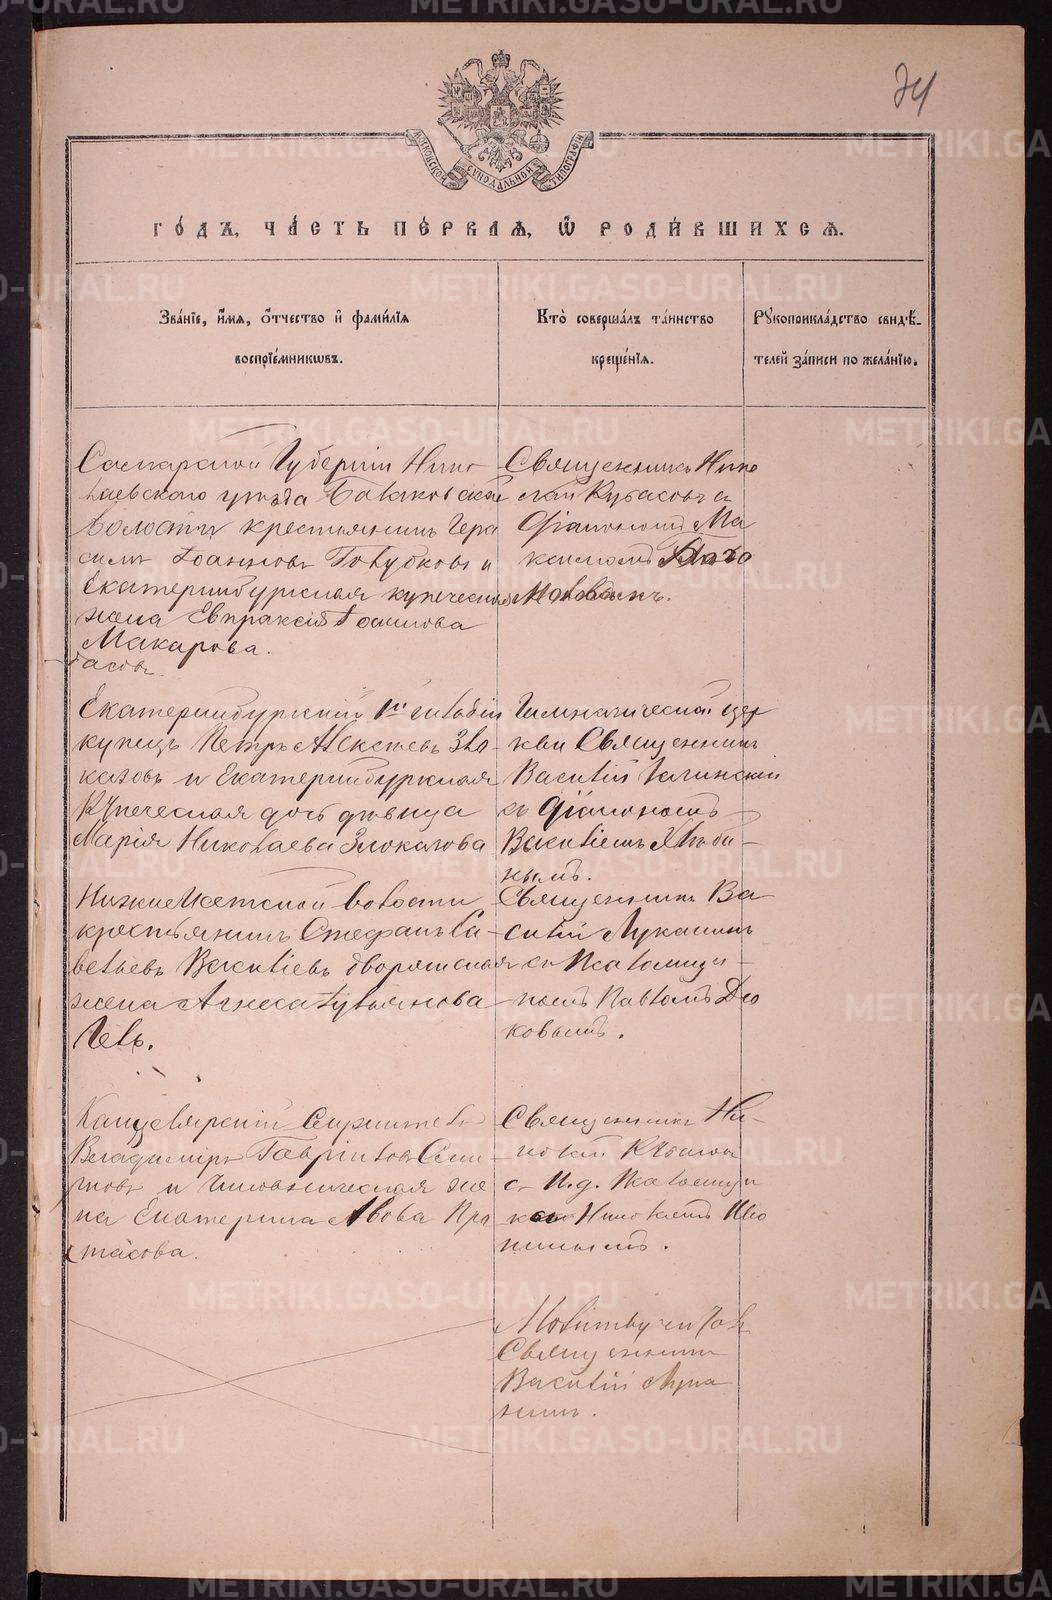 74
МОСКОВСКОЙ СѴНОДАЛЬНОЙ ТИПОГРАФІИ
го́дъ, ча́сть пе́рваѧ, ѡ҆ роди́вшихсѧ.
Зва́нїе, и҆́мѧ, ѻ҆́тчество и҆ фами́лїѧ
воспрїе́мникѡвъ.
Кто̀ соверша́лъ та́инство
креще́нїѧ.
Рꙋкоприкла́дство свидѣ́-
телей за́писи по жела́нїю.
Самарской Губерніи Нико
лаевскаго уѣзда Балаковской
волости крестьянинъ Гера
симъ Іоанновъ Голубковъ и
Екатеринбургская купеческая
жена Евпраксія Іоаннова
Макарова.
Священникъ Нико
лай
съ
Діакономъ Ма
ксимомъ
Екатеринбургскій 1й гильдіи
купецъ Петръ Алексѣевъ Зло
казовъ и Екатеринбургская
Купеческая дочь дѣвица
Марія Николаева Злоказова
Гимназической цер
кви Священникъ
Василій
съ Діакономъ
Василіемъ Хлѣби-
нымъ.
Нижнеисетской волости
крестьянинъ Стефанъ Са-
вельевъ Василіевъ дворянская
жена Агнеса
Гель.
Священникъ Ва-
силій Луканинъ
съ Псаломщи-
комъ Павломъ Дю
ковымъ.
Канцелярскій Служитель
Владиміръ Гавріиловъ Сели
новъ и Чиновническая же
на Екатерина Львова Про
тасова.
Священникъ Ни-
колай
съ И.д. Псаломщи
ка Николаемъ
Молитву читалъ
Священникъ
Василій Лука
нинъ.
METRIKI.GASO-URAL.RU